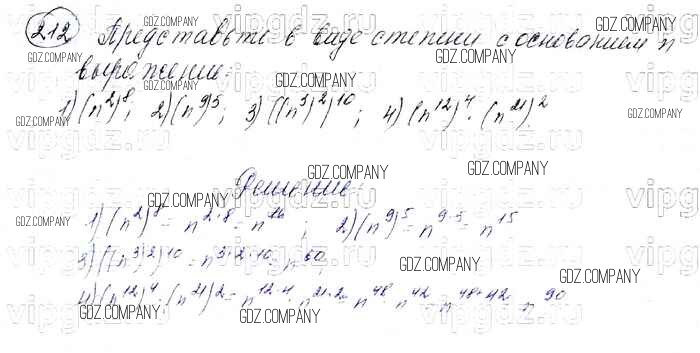 212 Представьте в виде степени с основанием n
выражение:
1) (n²)⁸; 2) (n⁹)⁵; 3) ((n³)²)¹⁰; 4) (n¹²)⁴ · (n²¹)²
Решение:
1) (n²)⁸ = n²·⁸ = n¹⁶; 2) (n⁹)⁵ = n⁹·⁵ = n¹⁵
3) ((n³)²)¹⁰ = n³·²·¹⁰ = n⁶⁰
4) (n¹²)⁴ · (n²¹)² = n¹²·⁴ · n²¹·² = n⁴⁸ · n⁴² = n⁴⁸⁺⁴² = n⁹⁰
GDZ.COMPANY
vipgdz.ru